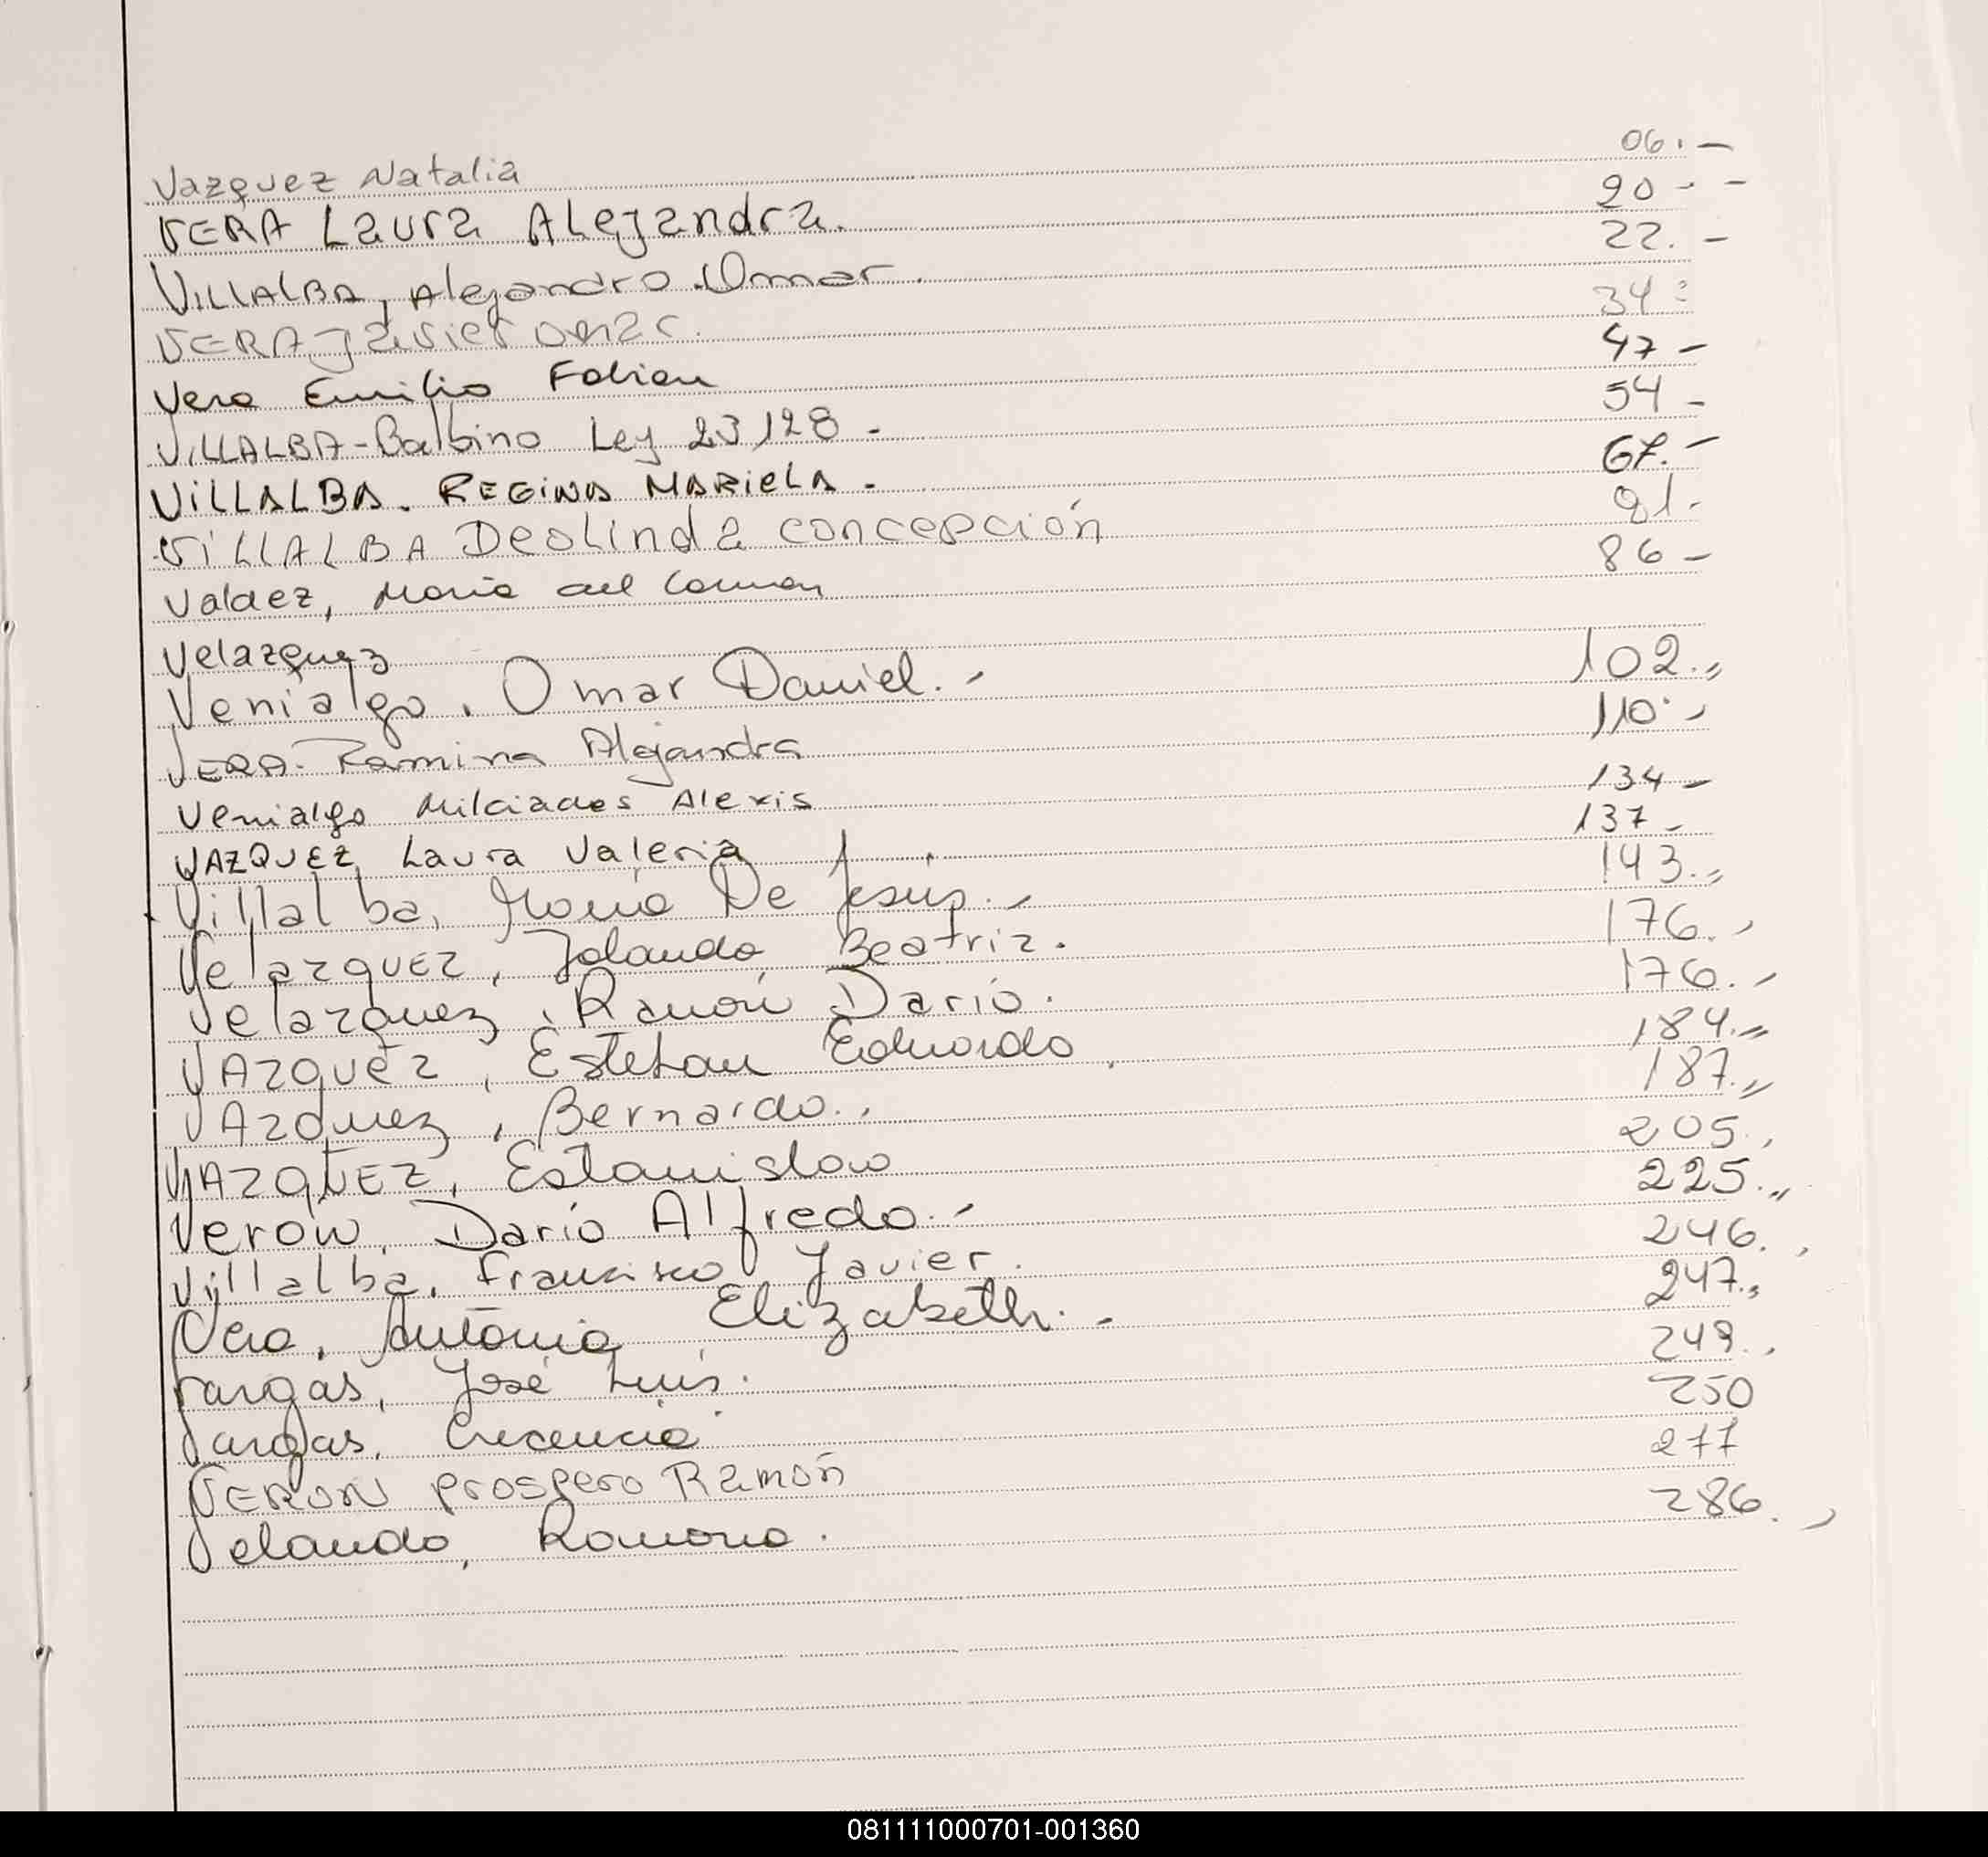 Vazquez Natalia 06.-
VERA Laura Alejandra. 20--
VILLALBA, Alejandro Omar. 22.-
VERA Javier Omar. 34:
Vera Emilio Fabian 47-
VILLALBA-Balbino Ley 23,128- 54-
VILLALBA. REGINA MARIELA. 67.-
VILLALBA Deolinda concepción 81.
Valdez, Maria del Carmen 86-
Velazquez
Venialgo, Omar Daniel.- 102.,,
VERA-Ramina Alejandra 110.-
Venialgo Milciades Alexis 134-
VAZQUEZ, Laura Valeria 137-
Villalba, María De Jesús.- 143.,,
Velazquez, Yolanda Beatriz. 176.,
Velazquez, Ramón Darío. 176.,
VAZQUEZ, Esteban Eduardo, 184.,,
VAZQUEZ, Bernardo., 187.,,
VAZQUEZ, Estanislao 205.,
Veron, Darío Alfredo.- 225.,,
Villalba, Francisco Javier. 246.,
Vera, Antonia Elizabeth.- 247.,,
Vargas, José Luis. 249.,
Vargas, Crecencia 250
VERON prospero Ramón 277
Velando, Romona. 286.,
081111000701-001360